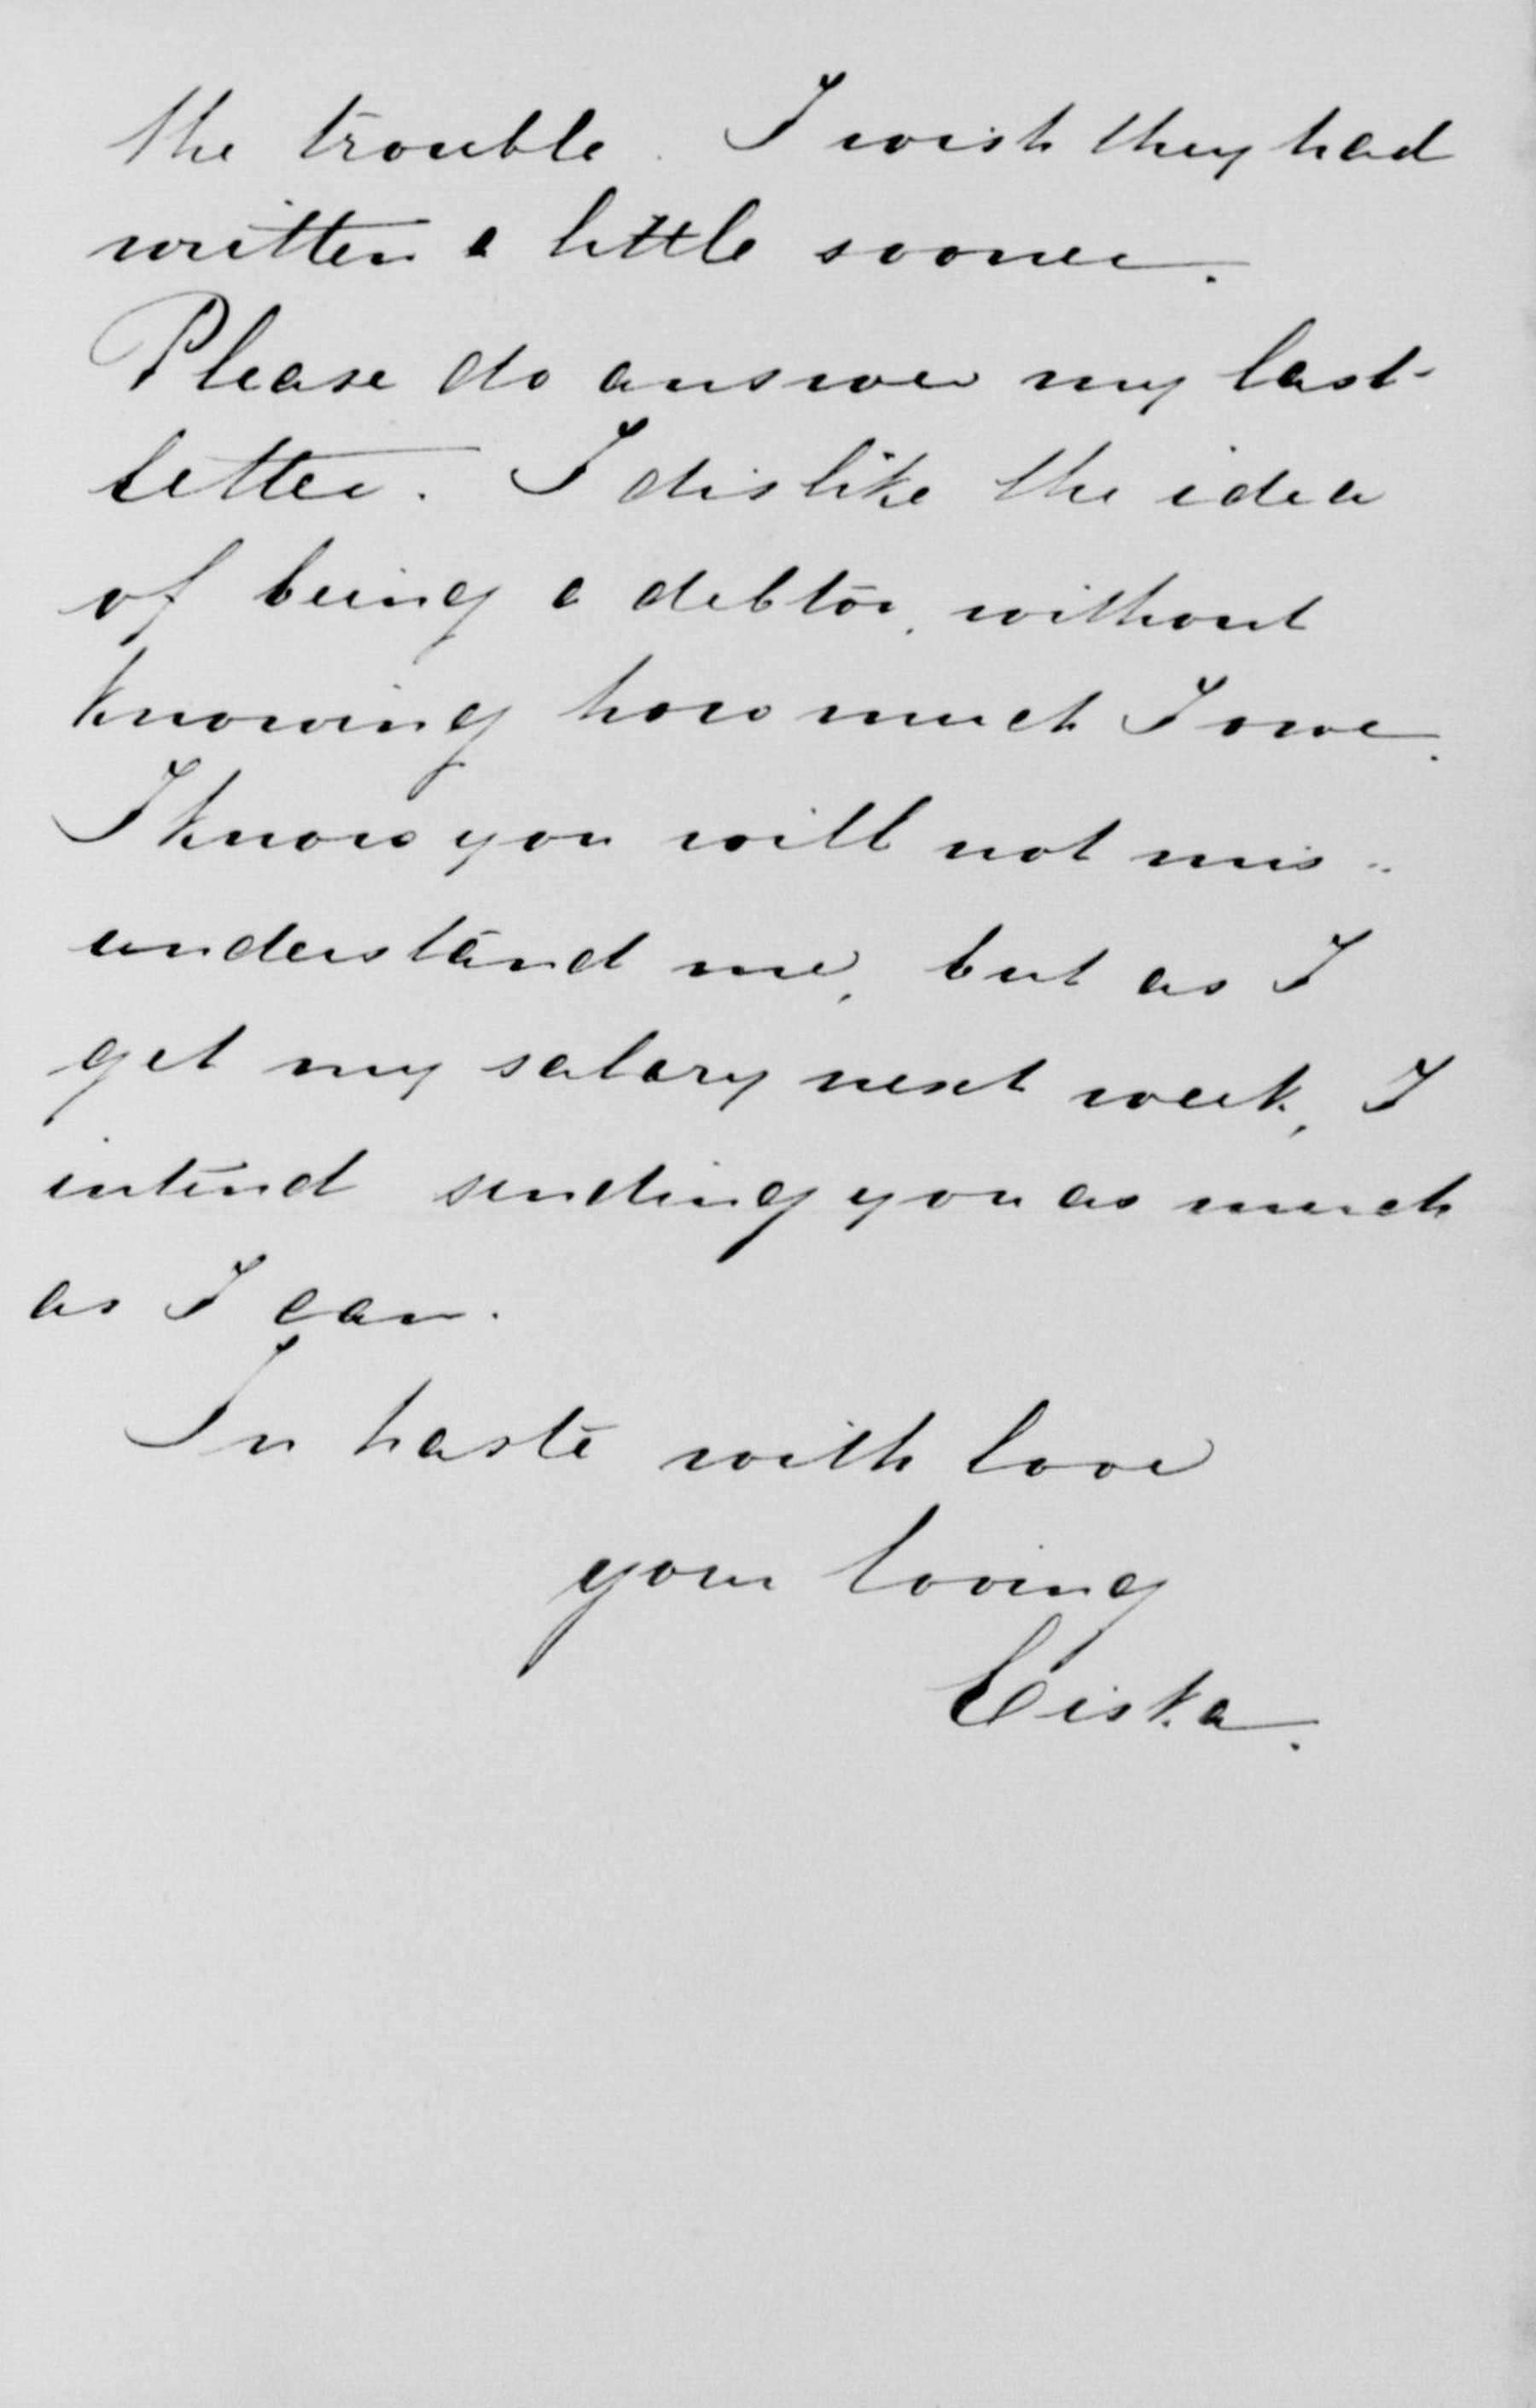 the trouble. I wish they had
written a little sooner.
Please do answer my last
letter. I dislike the idea
of being a debtor, without
knowing how much I owe.
I know you will not mis-
understand me, but as I
get my salary next week, I
intend sending you as much
as I can.
In haste with love
your loving
Ciska.